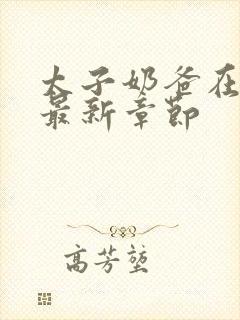 太子奶爸在
最新章节
高芳堃